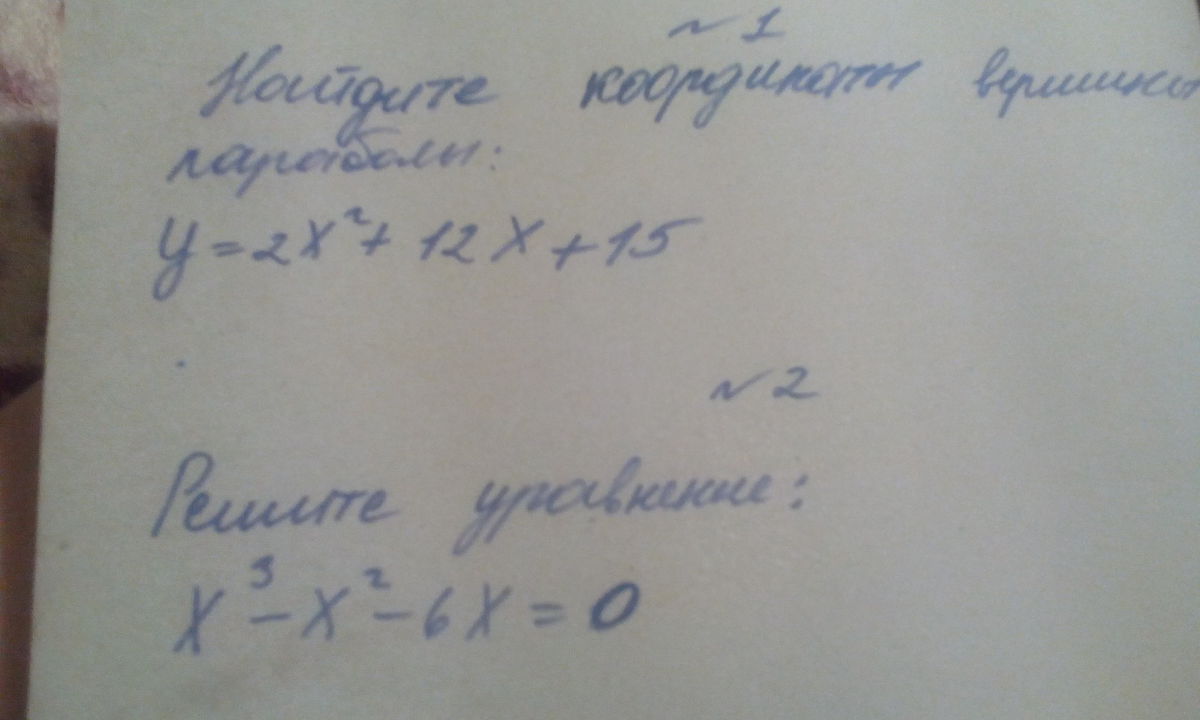 №1
Найдите координаты вершины
параболы:
y = 2x² + 12x + 15
№2
Решите уравнение:
x³ - x² - 6x = 0